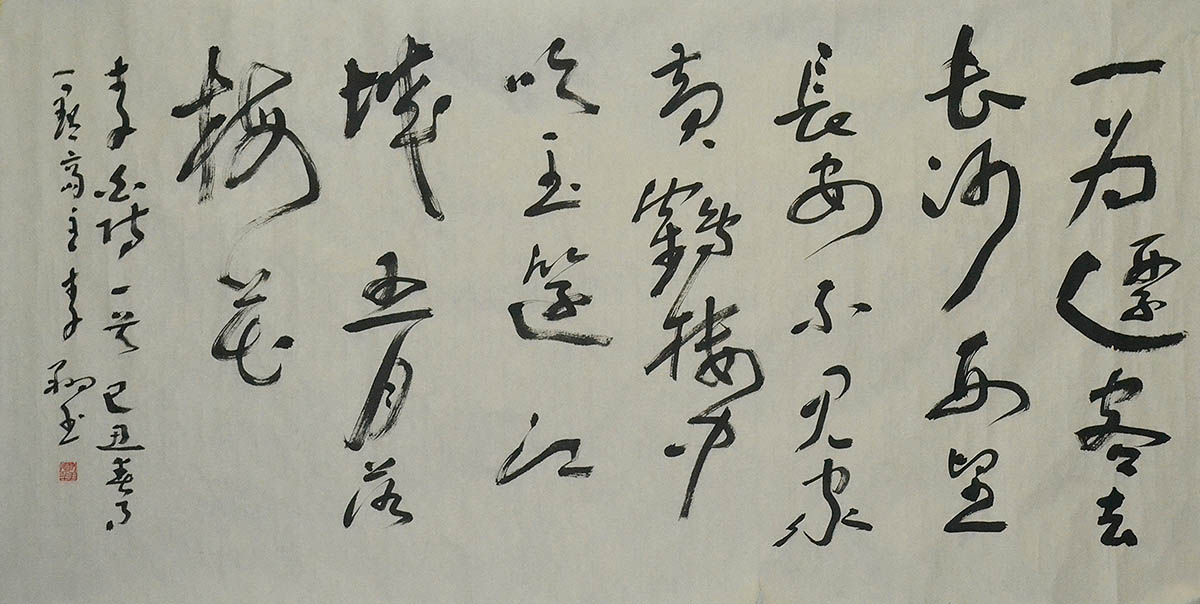 一为遷客去
长沙西望
長安不见家
黄鹤楼中
吹玉篴江
城五月落
梅花
李白诗一首 己丑春月
一 斋主李 书